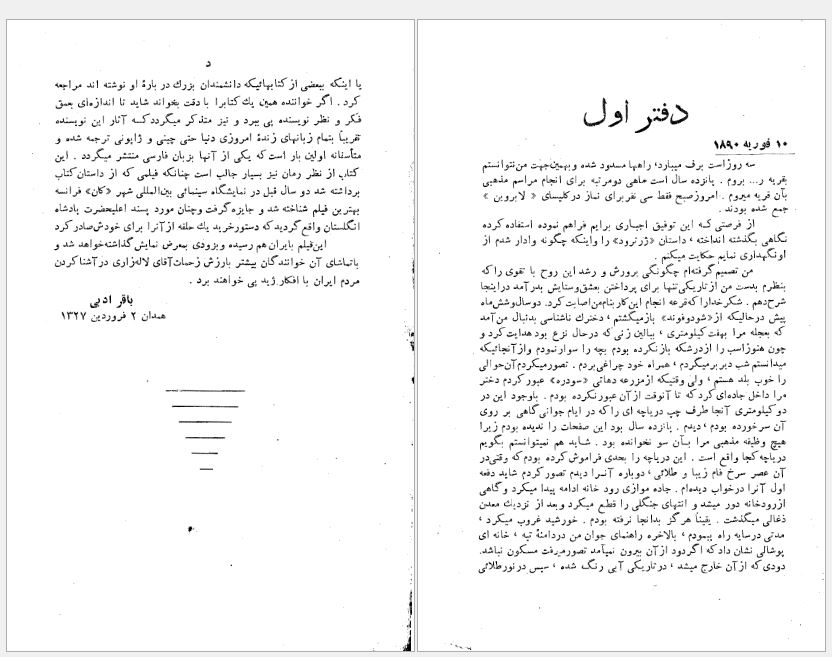 دفتر اول
۱۰ فوریه ۱۸۹۰
سه روز است برف میبارد، راهها مسدود شده و بهمین جهت من نتوانستم
بقریه ر... بروم . پانزده سال است ماهی دو مرتبه برای انجام مراسم مذهبی
بآن قریه میروم . امروز صبح فقط سی نفر برای نماز در کلیسای « لابروین »
جمع شده بودند .
از فرصتی که این توفیق اجباری برایم فراهم نموده استفاده کرده
نگاهی بگذشته انداخته ، داستان «ژرترود» را و اینکه چگونه وادار شدم از
او نگهداری نمایم حکایت میکنم .
من تصمیم گرفته‌ام چگونگی پرورش و رشد این روح با تقوی را که
بنظرم بدست من از تاریکی تنها برای پرداختن بعشق و ستایش بدر آمد در اینجا
شرح دهم . شکر خدا را که قرعه انجام این کار بنام من اصابت کرد. دو سال و شش ماه
پیش در حالیکه از «شودوفوند» باز میگشتم ، دخترك ناشناسی بدنبال من آمد
که بعجله مرا بهفت کیلومتری ، ببالین زنی که در حال نزع بود هدایت کرد و
چون هنوز اسب را از درشکه باز نکرده بودم بچه را سوار نمودم و از آنجائیکه
میدانستم شب دیر بر میگردم ، همراه خود چراغی بردم . تصور میکردم آن حوالی
را خوب بلد هستم ، ولی وقتیکه از مزرعه دهاتی «سودره» عبور کردم دختر
مرا داخل جاده‌ای کرد که تا آنوقت از آن عبور نکرده بودم . باوجود این در
دو کیلومتری آنجا طرف چپ دریاچه ای را که در ایام جوانی گاهی بر روی
آن سر خورده بودم ، دیدم . پانزده سال بود این صفحات را ندیده بودم زیرا
هیچ وظیفه مذهبی مرا بآن سو نخوانده بود . شاید هم نمیتوانستم بگویم
دریاچه کجا واقع است . این دریاچه را بحدی فراموش کرده بودم که وقتی در
آن عصر سرخ فام زیبا و طلائی ، دوباره آنرا دیدم تصور کردم شاید دفعه
اول آنرا در خواب دیده‌ام . جاده موازی رود خانه ادامه پیدا میکرد و گاهی
از رودخانه دور میشد و انتهای جنگلی را قطع میکرد و بعد از نزدیك معدن
ذغالی میگذشت . یقیناً هرگز بدانجا نرفته بودم . خورشید غروب میکرد ،
مدتی در سایه راه پیمودم ، بالاخره راهنمای جوان من در دامنهٔ تپه ، خانه ای
پوشالی نشان داد که اگر دود از آن بیرون نمیآمد تصور میرفت مسکون نباشد.
دودی که از آن خارج میشد ، در تاریکی آبی رنگ شده ، سپس در نور طلائی
د
یا اینکه ببعضی از کتابهائیکه دانشمندان بزرك در بارهٔ او نوشته اند مراجعه
کرد . اگر خواننده همین یك کتابرا با دقت بخواند شاید تا اندازه‌ای بعمق
فکر و نظر نویسنده پی ببرد و نیز متذکر میگردد که آثار این نویسنده
تقریباً بتمام زبانهای زندهٔ امروزی دنیا حتی چینی و ژاپونی ترجمه شده و
متأسفانه اولین بار است که یکی از آنها بزبان فارسی منتشر میگردد . این
کتاب از نظر رمان نیز بسیار جالب است چنانکه فیلمی که از داستان کتاب
برداشته شد دو سال قبل در نمایشگاه سینمائی بین‌المللی شهر «کان» فرانسه
بهترین فیلم شناخته شد و جایزه گرفت و چنان مورد پسند اعلیحضرت پادشاه
انگلستان واقع گردید که دستور خرید یك حلقه از آنرا برای خودش صادر کرد
این فیلم بایران هم رسیده و بزودی بمعرض نمایش گذاشته خواهد شد و
باتماشای آن خوانندگان بیشتر بارزش زحمات آقای لاله‌زاری در آشنا کردن
مردم ایران با افکار ژید پی خواهند برد .
باقر ادبی
همدان ۲ فروردین ۱۳۲۷